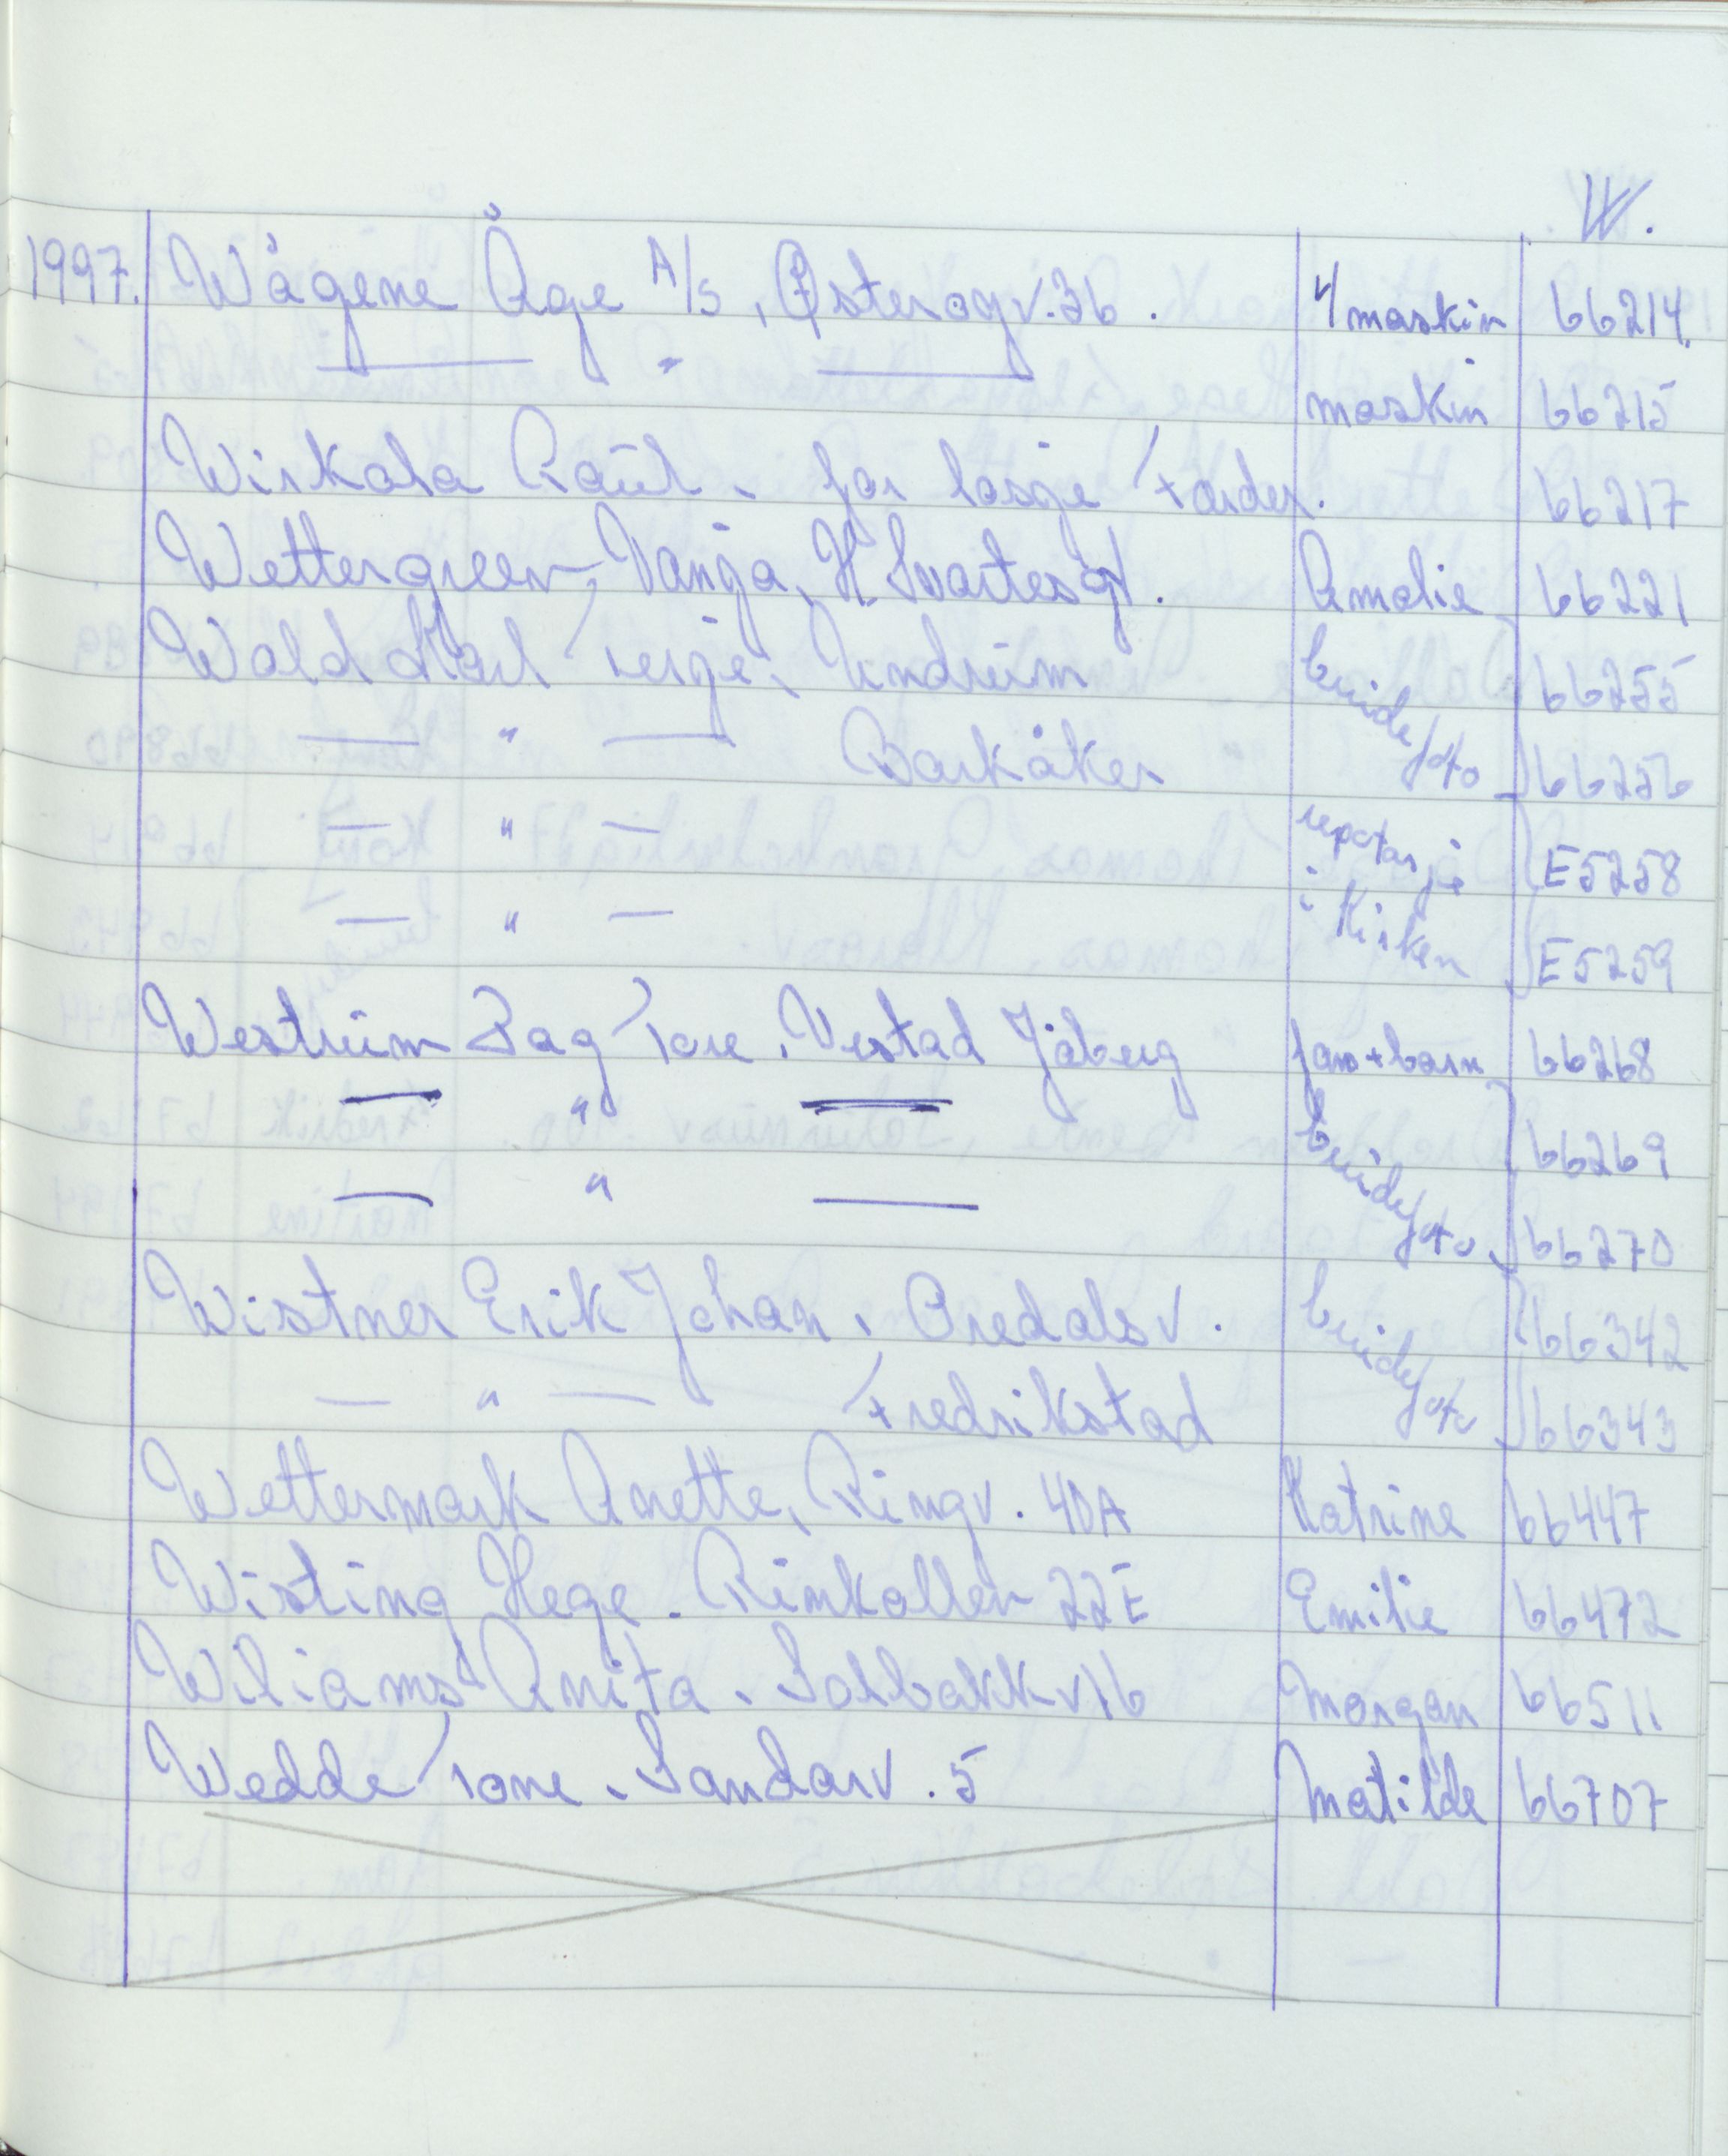 W.
1997. Wågene Åge A/S, Østerøyv. 36. 4 maskin 66214.
— " — maskin 66215
Wirkola Raül. for losje Færder. 66217
Wettergreen, Vanja, H. Svartesgt. Amalie 66221
Wold Karl Terje. Undrüm brüdefoto 66255
— " — Barkåker 66256
— " — repotasje E5258
— " — i Kirken E5259
Westrüm Dag Tore. Vestad Jåberg fam + barn 66268
— " — brüdefoto 66269
— " — 66270
Wistner Erik Johan. Bredalsv. brüdefoto 66342
— " — Fredrikstad 66343
Wettermark Anette, Ringv. 40A Katrine 66447
Wisting Hege. Rimkollen 22E Emilie 66472
Wiliams Anita. Solbakkv 16 Morgan 66511
Wedde Tone. Sandarv. 5 Matilde 66707